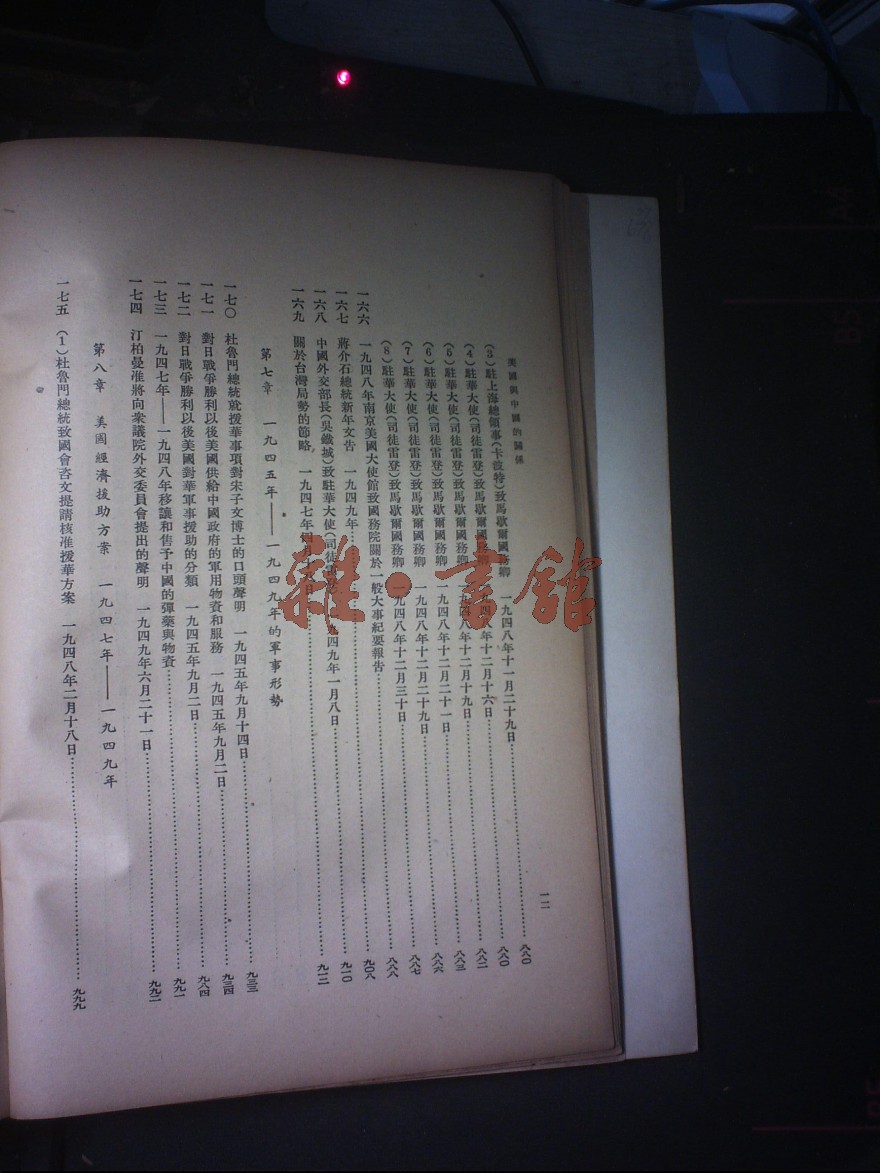 美國與中國的關係
一二
(3)駐上海總領事(卡波特)致馬歇爾國務卿 一九四八年十一月二十九日……八八〇
(4)駐華大使(司徒雷登)致馬歇爾國務卿 一九四八年十二月十六日……八八〇
(5)駐華大使(司徒雷登)致馬歇爾國務卿 一九四八年十二月十九日……八八二
(6)駐華大使(司徒雷登)致馬歇爾國務卿 一九四八年十二月二十一日……八八三
(7)駐華大使(司徒雷登)致馬歇爾國務卿 一九四八年十二月二十九日……八八六
(8)駐華大使(司徒雷登)致馬歇爾國務卿 一九四八年十二月三十日……八八七
一六六 一九四八年南京美國大使館致國務院關於一般大事紀要報告……八八八
一六七 蔣介石總統新年文告 一九四九年……九〇八
一六八 中國外交部長(吳鐵城)致駐華大使(司徒雷登) 一九四九年一月八日……九一〇
一六九 關於台灣局勢的節略 一九四七年四月十八日……九一二
第七章 一九四五年——一九四九年的軍事形勢
一七〇 杜魯門總統就援華事項對宋子文博士的口頭聲明 一九四五年九月十四日……九三三
一七一 對日戰爭勝利以後美國供給中國政府的軍用物資和服務 一九四五年九月二日……九三四
一七二 對日戰爭勝利以後美國對華軍事援助的分類 一九四五年九月二日……九八四
一七三 一九四七年——一九四八年移讓和售予中國的彈藥與物資……九九一
一七四 汀柏曼准將向衆議院外交委員會提出的聲明 一九四九年六月二十一日……九九二
第八章 美國經濟援助方案 一九四七年——一九四九年
一七五 (1)杜魯門總統致國會咨文提請核准援華方案 一九四八年二月十八日……九九九
雜·書館